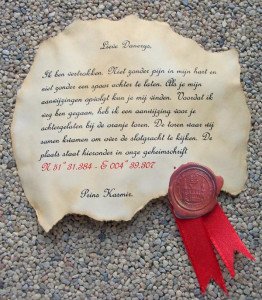 Lieve Danerys,
Ik ben vertrokken. Niet zonder pijn in mijn hart en
niet zonder een spoor achter te laten. Als je mijn
aanwijzingen opvolgt kun je mij vinden. Voordat ik
weg ben gegaan, heb ik een aanwijzing voor je
achtergelaten bij de oranje toren. De toren waar wij
samen kwamen om over de slotgracht te kijken. De
plaats staat hieronder in onze geheimschrift
N 51° 31.384 - E 004° 39.307
Prins Kasmir.